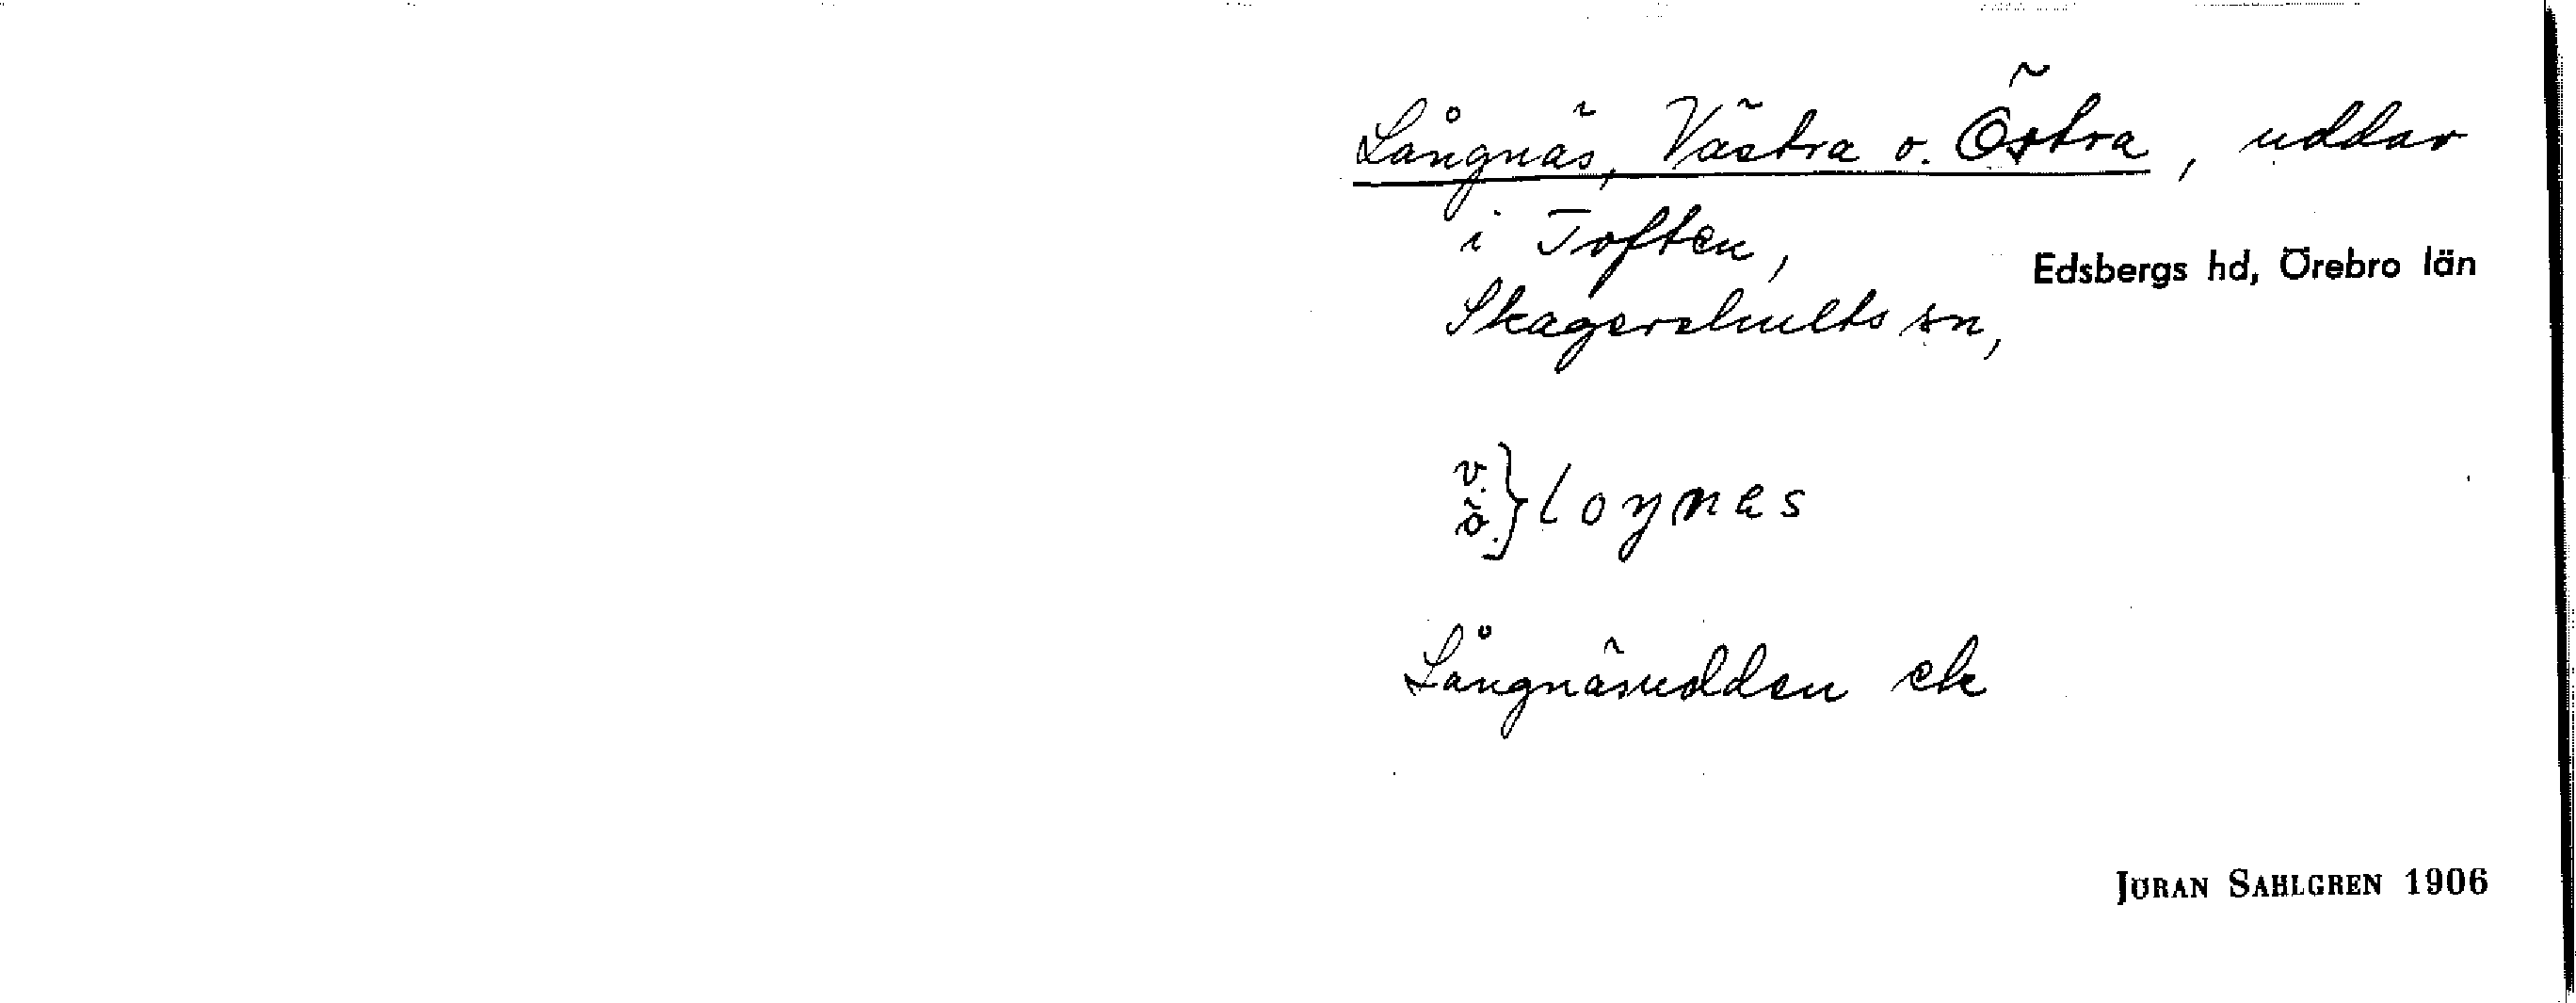 Långnäs, Västra o. Östra, uddar
i Toften,
Edsbergs hd, Örebro län
Skagershults sn,
v.
ö. } loŋnes
Långnäsudden ek
JÖRAN SAHLGREN 1906